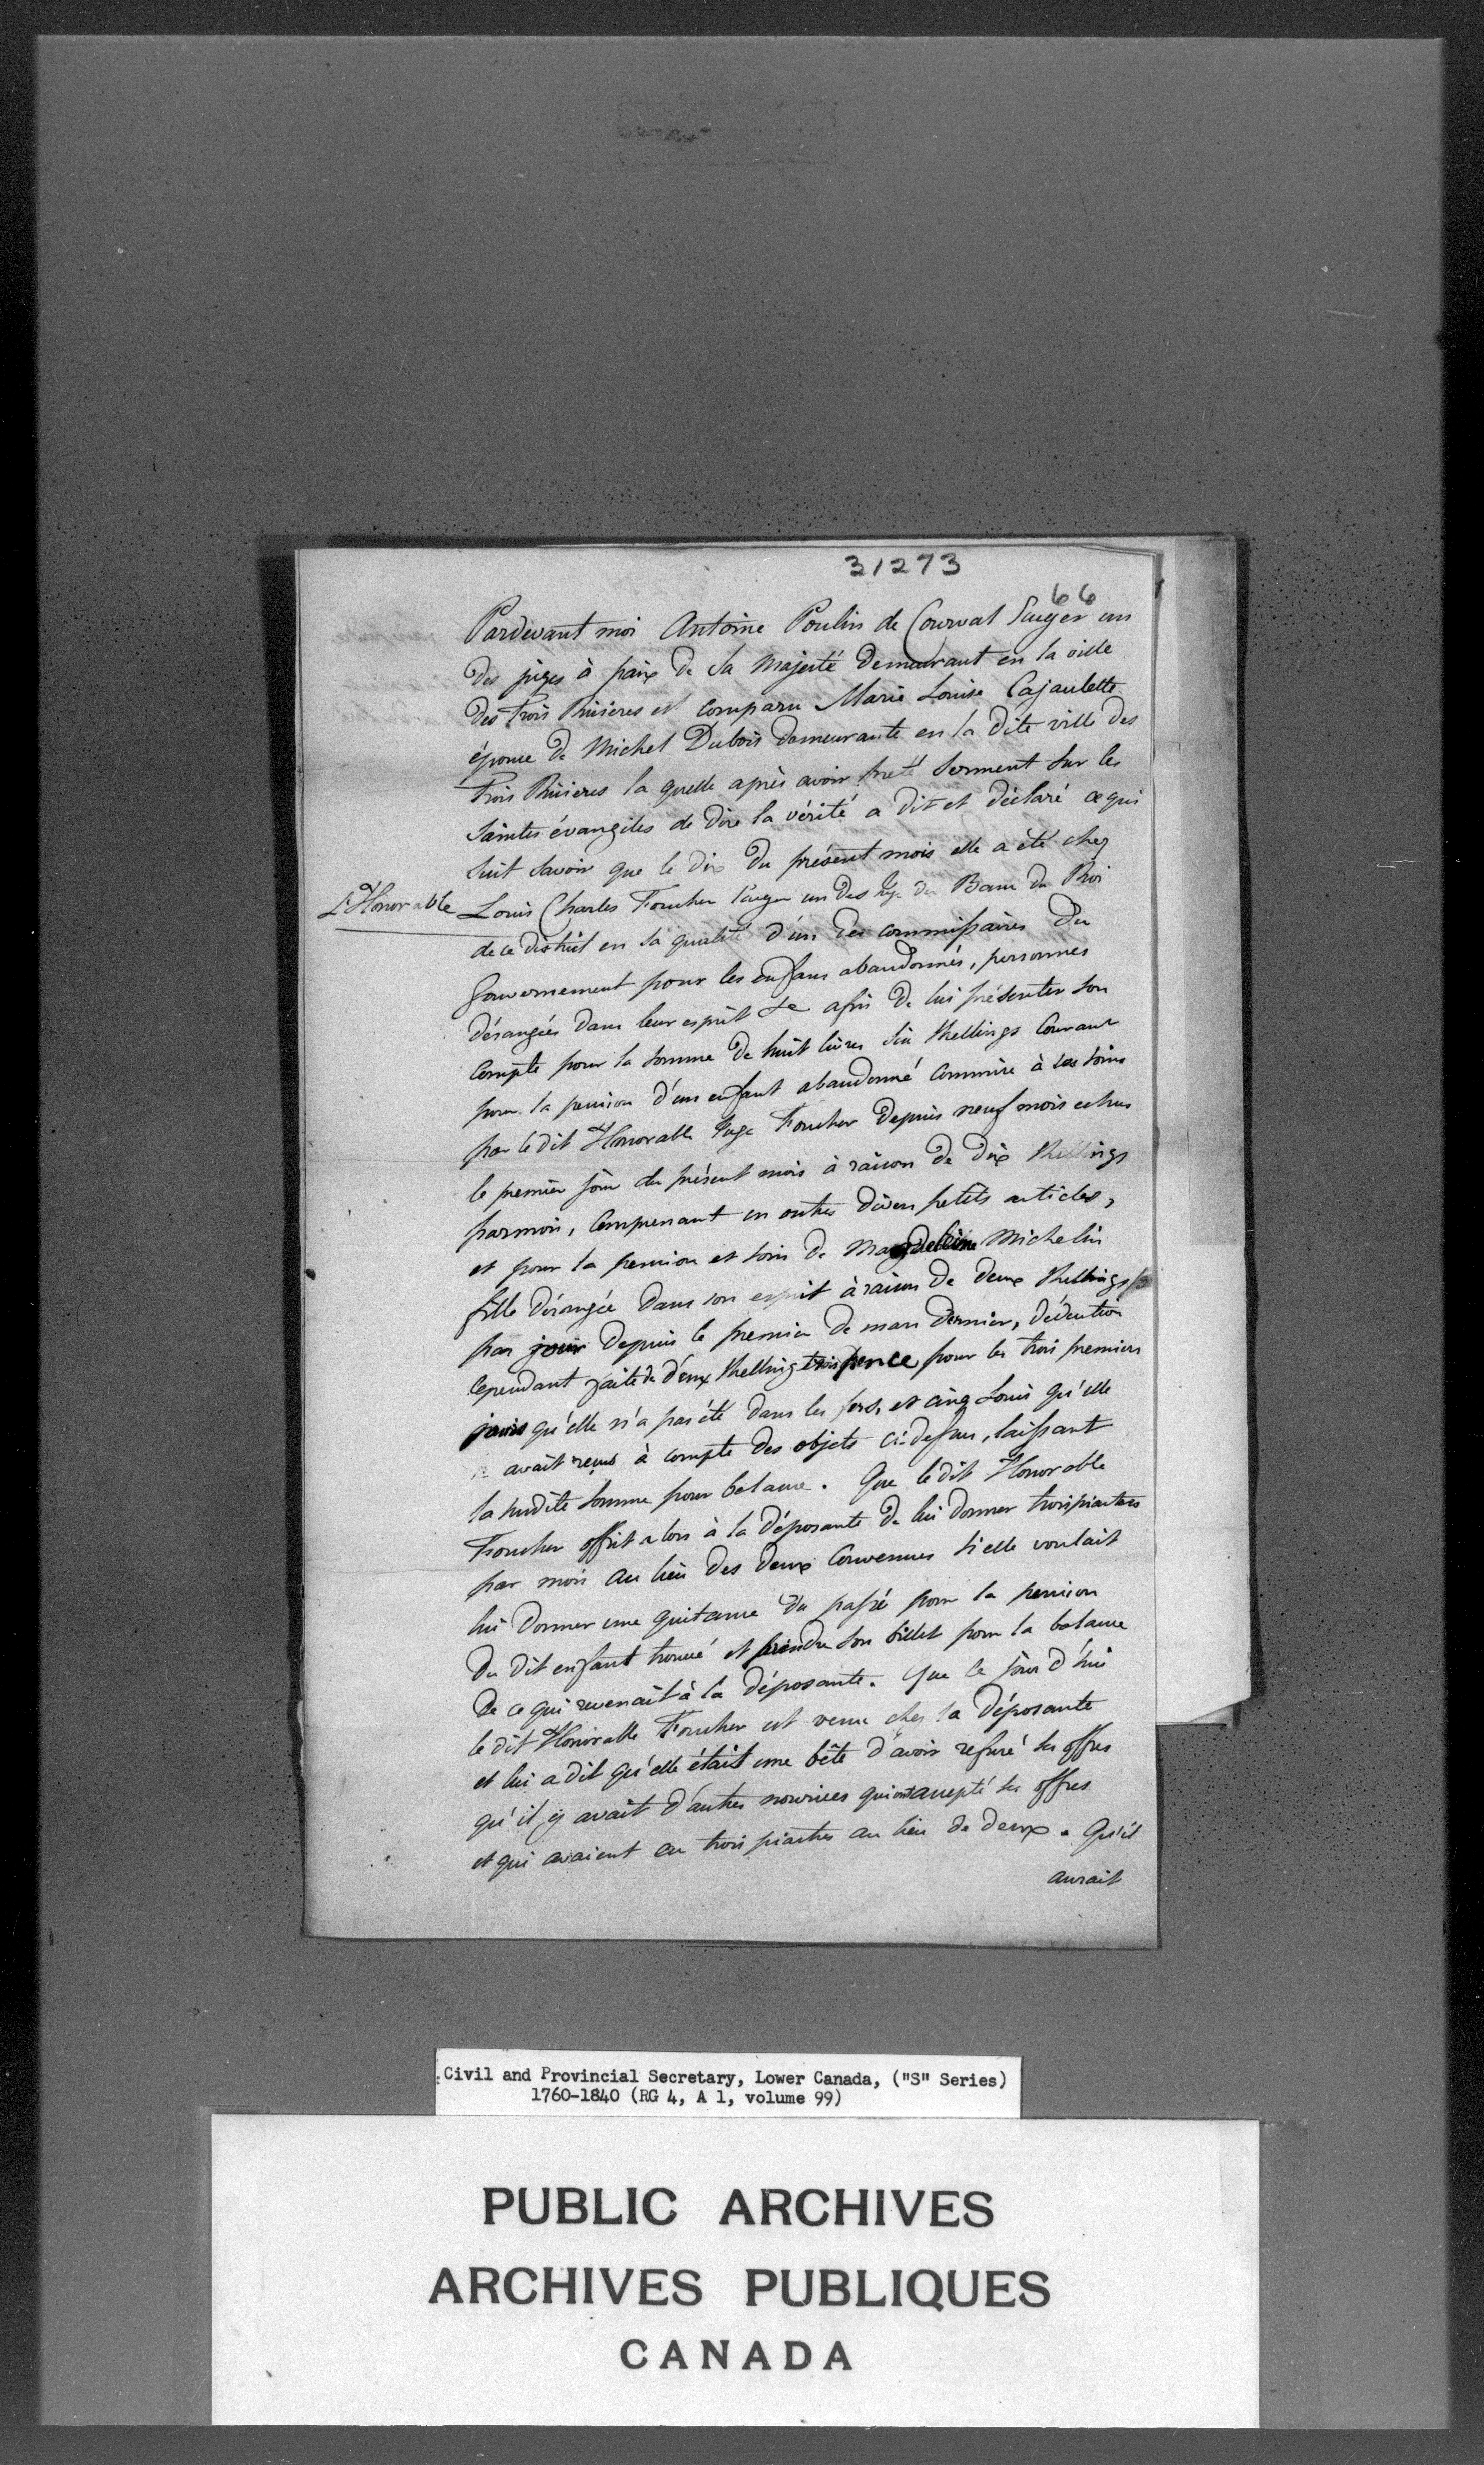 31273
66
Pardevant moi Antoine Poulin de Courval Ecuyer un
des juges à paix de Sa Majesté demeurant en la ville
des Trois Rivieres est comparu Marie Louise Cajaulette
épouse de Michel Dubois demeurante en la dite ville des
Trois Rivieres la quelle après avoir preté serment sur les
saintes évangiles de dire la vérité a dit et déclaré ce qui
suit savoir que le dix du présent mois elle a été chez
L'Honorable Louis Charles Foucher Ecuyer un des Juges du Banc du Roi
de ce district en sa qualité d'un des commissaires du
Gouvernement pour les enfans abandonnés, personnes
dérangées dans leur esprit &c afin de lui présenter son
Compte pour la somme de huit livres six shellings Courant
pour la pension d'un enfant abandonné commire à ses soins
par le dit Honorable Juge Foucher depuis neuf mois echus
le premier jour du présent mois à raison de dix shellings
par mois, Comprenant en outres divers petits articles,
et pour la pension et soin de Magdeleine Michelin
fille dérangée dans son esprit à raison de deux shellings
par jour depuis le premier de mars dernier, déduction
cependant faite de deux shelling trois pence pour les trois premiers
jours qu'elle n'a pas été dans les fers, et cinq Louis qu'elle
avait reçus à compte des objets ci-dessus, laissant
la susdite somme pour balance. Que le dit Honorable
Foucher offrit alors à la déposante de lui donner trois piastres
par mois au lieu des deux Convenues si elle voulait
lui donner une quitance du passé pour la pension
du dit enfant trouvé et prendre son billet pour la balance
de ce qui revenait à la déposante. Que le jour d'hui
le dit Honorable Foucher est venu chez la déposante
et lui a dit qu'elle était une bête d'avoir refusé ses offres
qu'il y avait d'autres nourices qui ont accepté ses offres
et qui avaient eu trois piastres au lieu de deux. Qu'il
aurait
Civil and Provincial Secretary, Lower Canada, ("S" Series)
1760-1840 (RG 4, A 1, volume 99)
PUBLIC ARCHIVES
ARCHIVES PUBLIQUES
CANADA